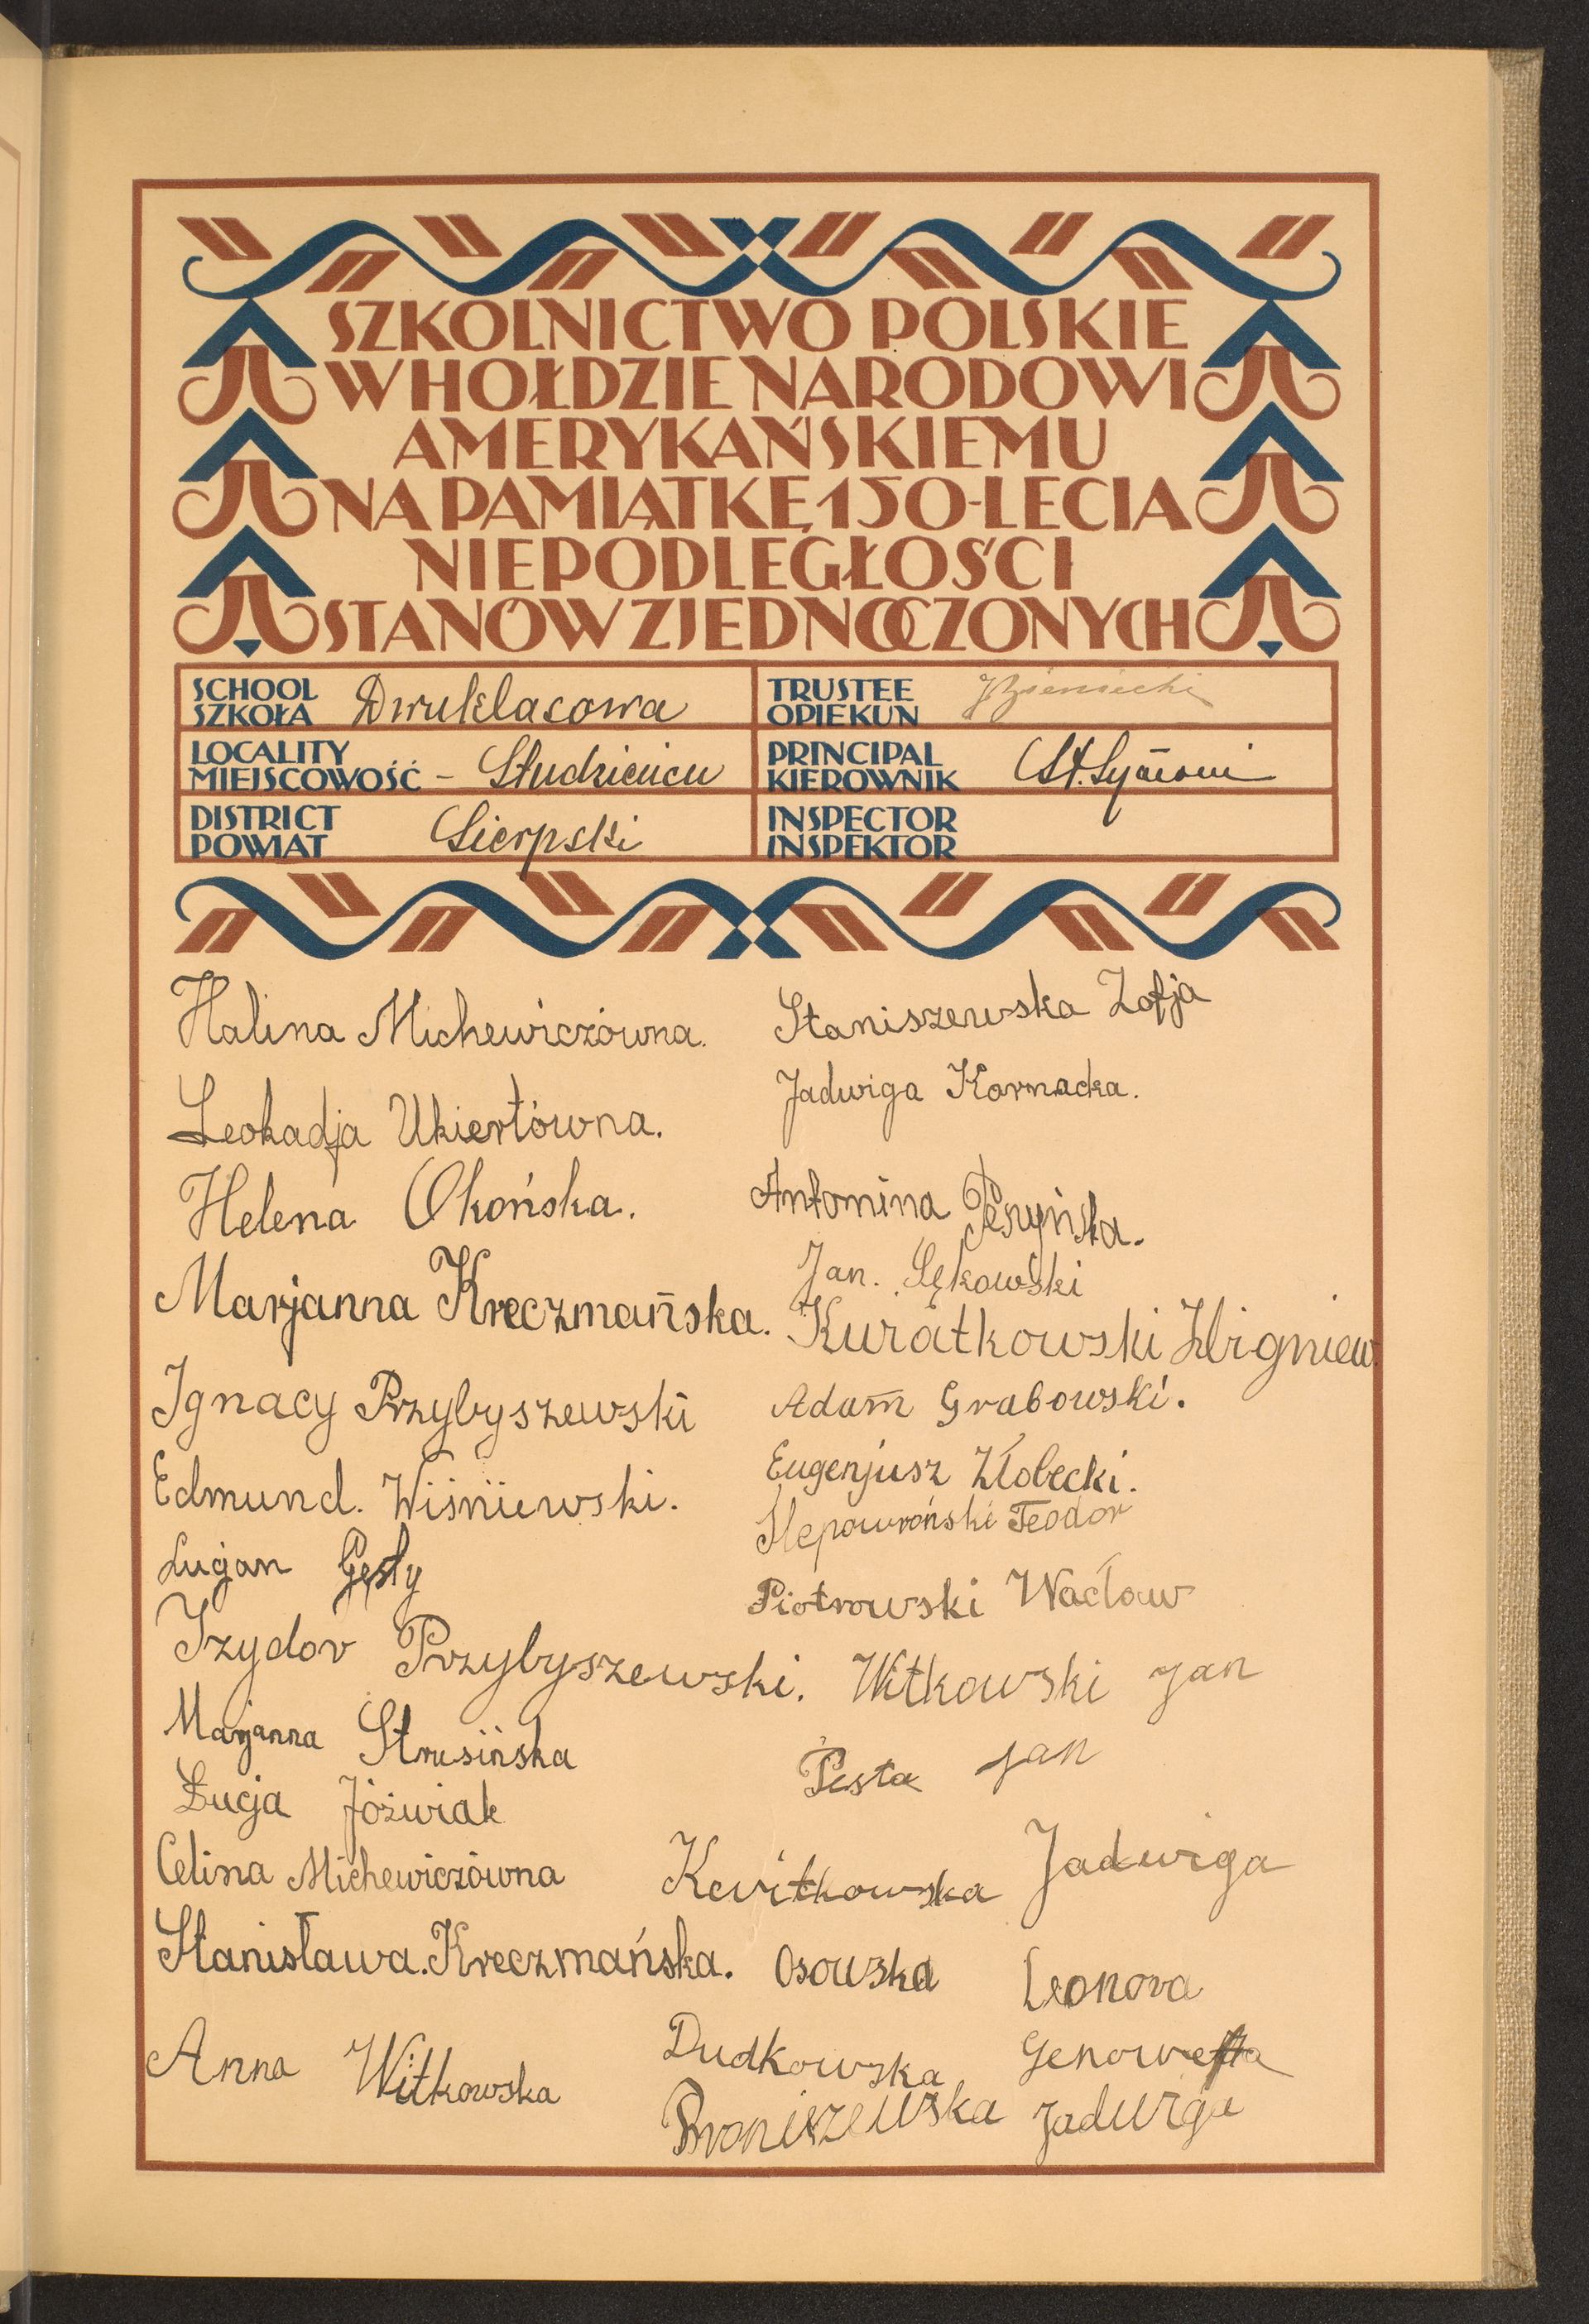 SZKOLNICTWO POLSKIE
W HOŁDZIE NARODOWI
AMERYKAŃSKIEMU
NA PAMIĄTKĘ 150-LECIA
NIEPODLEGŁOŚCI
STANÓW ZJEDNOCZONYCH
SCHOOL
SZKOŁA Dwuklasowa
TRUSTEE
OPIEKUN
LOCALITY
MIEJSCOWOŚĆ - Studzieńcu
PRINCIPAL
KIEROWNIK St.
DISTRICT
POWIAT Sierpski
INSPECTOR
INSPEKTOR
Halina Michewiczówna.
Leokadja Ukiertówna.
Helena Okońska.
Marjanna Kreczmańska.
Ignacy Przybyszewski
Edmund. Wiśniewski.
Lucjan Gęsty
Izydor Przybyszewski.
Marjanna Strusińska
Łucja Jóźwiak
Celina Michewiczówna
Stanisława. Kreczmańska.
Anna Witkowska
Staniszewska Zofja
Jadwiga Karnacka.
Antonina
Jan. Sękowski
Kuratkowski Zbigniew.
Adam Grabowski.
Eugenjusz Złobecki.
Ślepowroński Teodor
Piotrowski Wacław
Witkowski Jan
Pesta Jan
Kwitkowska Jadwiga
Osowska Leonora
Dudkowska Genowefa
Broniszewska Jadwiga